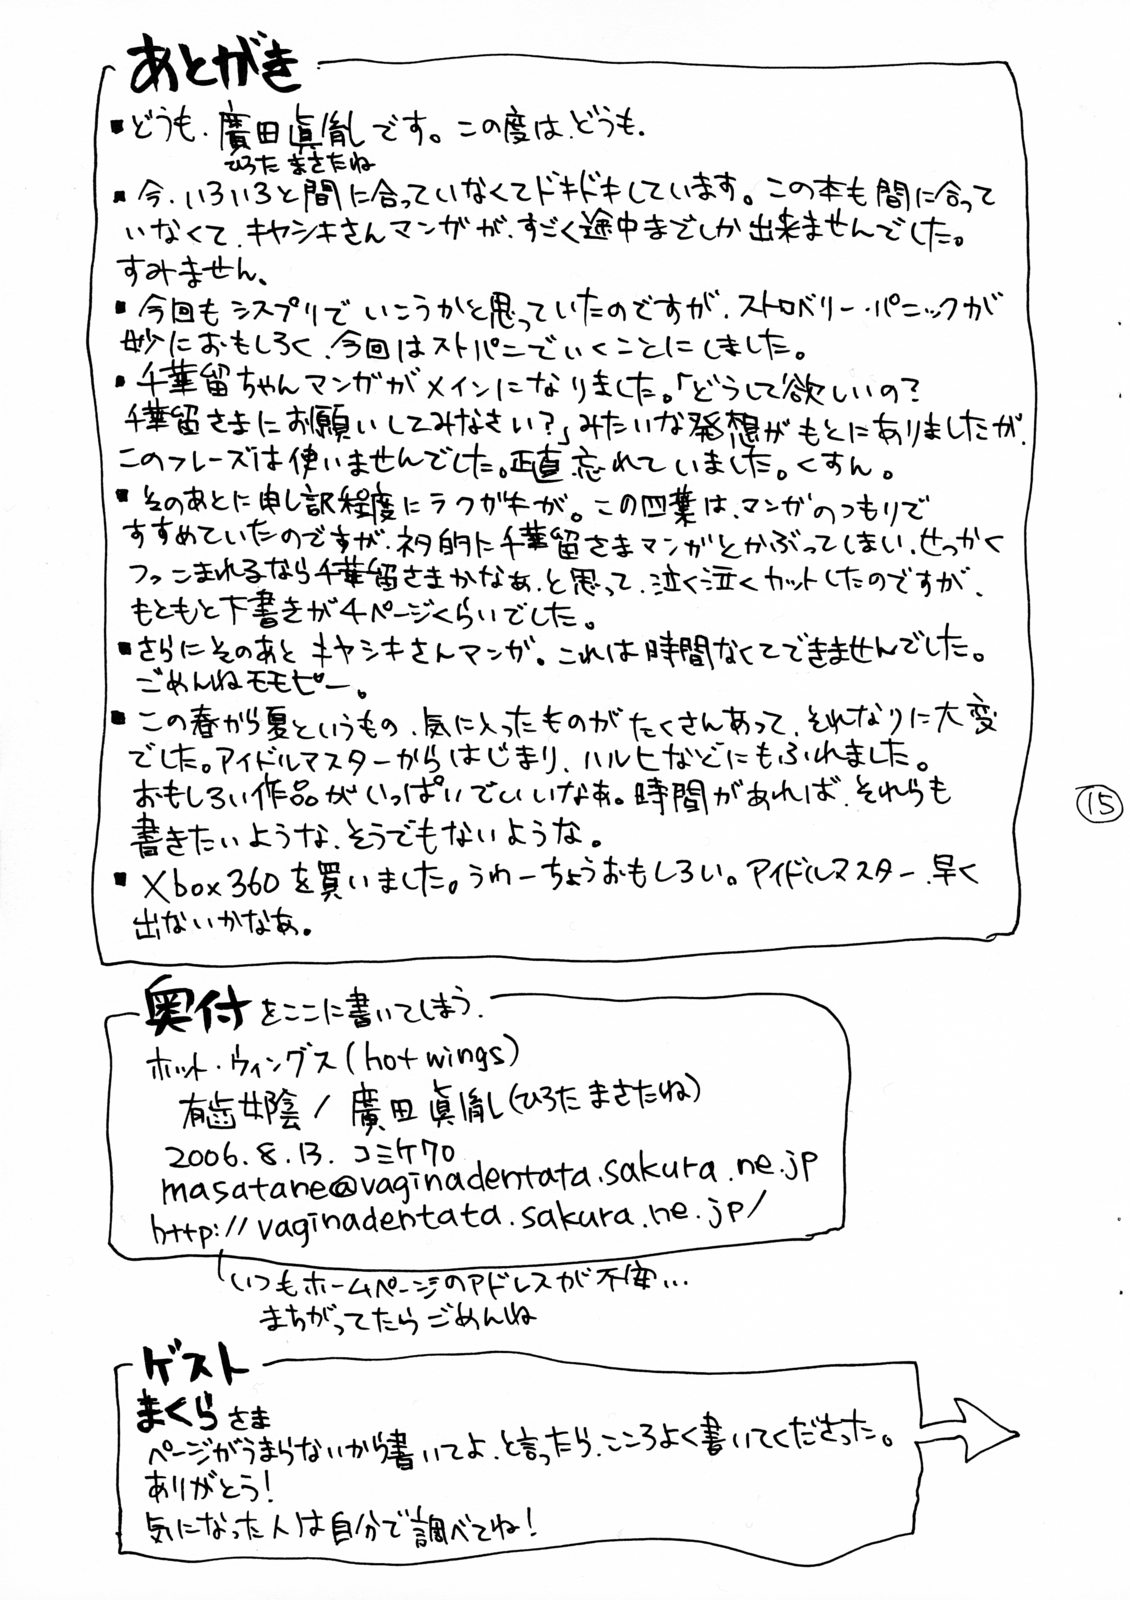 あとがき
▪どうも、廣田眞胤です。この度は、どうも。
ひろた まさたね
▪今、いろいろと間に合っていなくてドキドキしています。この本も間に合って
いなくて、キヤシキさんマンガが、すごく途中までしか出来ませんでした。
すみません。
▪今回もシスプリでいこうかと思っていたのですが、ストロベリー・パニックが
妙におもしろく、今回はストパニでいくことにしました。
▪千華留ちゃんマンガがメインになりました。「どうして欲しいの？
千華留さまにお願いしてみなさい？」みたいな発想がもとにありましたが、
このフレーズは使いませんでした。正直忘れていました。くすん。
▪そのあとに申し訳程度にラクガキが。この四葉は、マンガのつもりで
すすめていたのですが、ネタ的に千華留さまマンガとかぶってしまい、せっかく
つっこまれるなら千華留さまかなぁ、と思って、泣く泣くカットしたのですが、
もともと下書きが4ページくらいでした。
▪さらにそのあとキヤシキさんマンガ。これは時間なくてできませんでした。
ごめんねモモピー。
▪この春から夏というもの、気に入ったものがたくさんあって、それなりに大変
でした。アイドルマスターからはじまり、ハルヒなどにもふれました。
おもしろい作品がいっぱいでいいなあ。時間があれば、それらも
書きたいような、そうでもないような。
▪Xbox360を買いました。うわーちょうおもしろい。アイドルマスター、早く
出ないかなあ。
15
奥付をここに書いてしまう。
ホット・ウィングス(hot wings)
有歯女陰/廣田眞胤(ひろた まさたね)
2006.8.13. コミケ70
masatane@vaginadentata.sakura.ne.jp
http://vaginadentata.sakura.ne.jp/
いつもホームページのアドレスが不安...
まちがってたらごめんね
ゲスト
まくらさま
ページがうまらないから書いてよ、と言ったら、こころよく書いてくださった。
ありがとう！
気になった人は自分で調べてね！